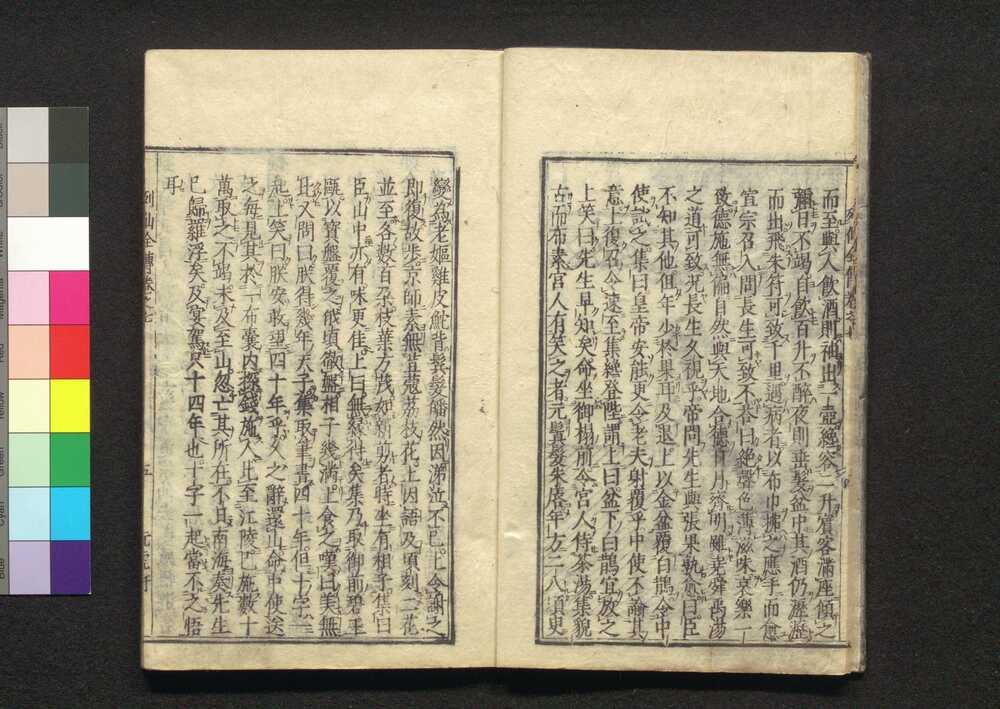 而至與人飲酒則袖出一壺纔容一升賓客滿座傾之
彌日不竭自飲百升不醉夜則垂髮盆中其酒仍瀝瀝
而出飛朱符可致千里遇病者以布巾拂之應手而愈
宣宗召入問長生可致不恭曰絶聲色薄滋味哀樂一
致德施無偏自然與天地合德日月齊明雖堯舜禹湯
之道可致况長生久視乎帝問先生與張果孰愈曰臣
不知其他但年少於果耳及退上以金盆覆白鵲令中
使試之集曰皇帝安能更令老夫射覆乎中使不諭其
意上復召令速至集纔登陛謂上曰盆下白鵲宜放之
上笑曰先生早知矣命坐御榻前令宮人侍茶湯集貌
古而布素宮人有笑之者元鬢髮朱唇年方二八須臾
變為老嫗雞皮鮐背鬢髮皤然因涕泣不已上令謝之
即復故步京師素無荳蔻荔枝花上因語及頃刻二花
並至各數百朶枝葉方茂如新剪者時坐有相子集曰
臣山中亦有味更佳上曰無緣得矣集乃取御前碧玉
甌以寶盤覆之俄頃徹盤相子幾滿上食之嘆曰美無
比又問曰朕得幾年天子集取筆書四十年但十字一
起上笑曰朕安敢望四十年乎久之辭還山命中使送
之每見其於一布囊內探錢施人比至江陵已施數十
萬取之不竭未及至山忽亡其所在不日南海奏先生
已歸羅浮矣及宴駕只十四年也十字一起當不之悟
耳
列仙全傳卷之七
五